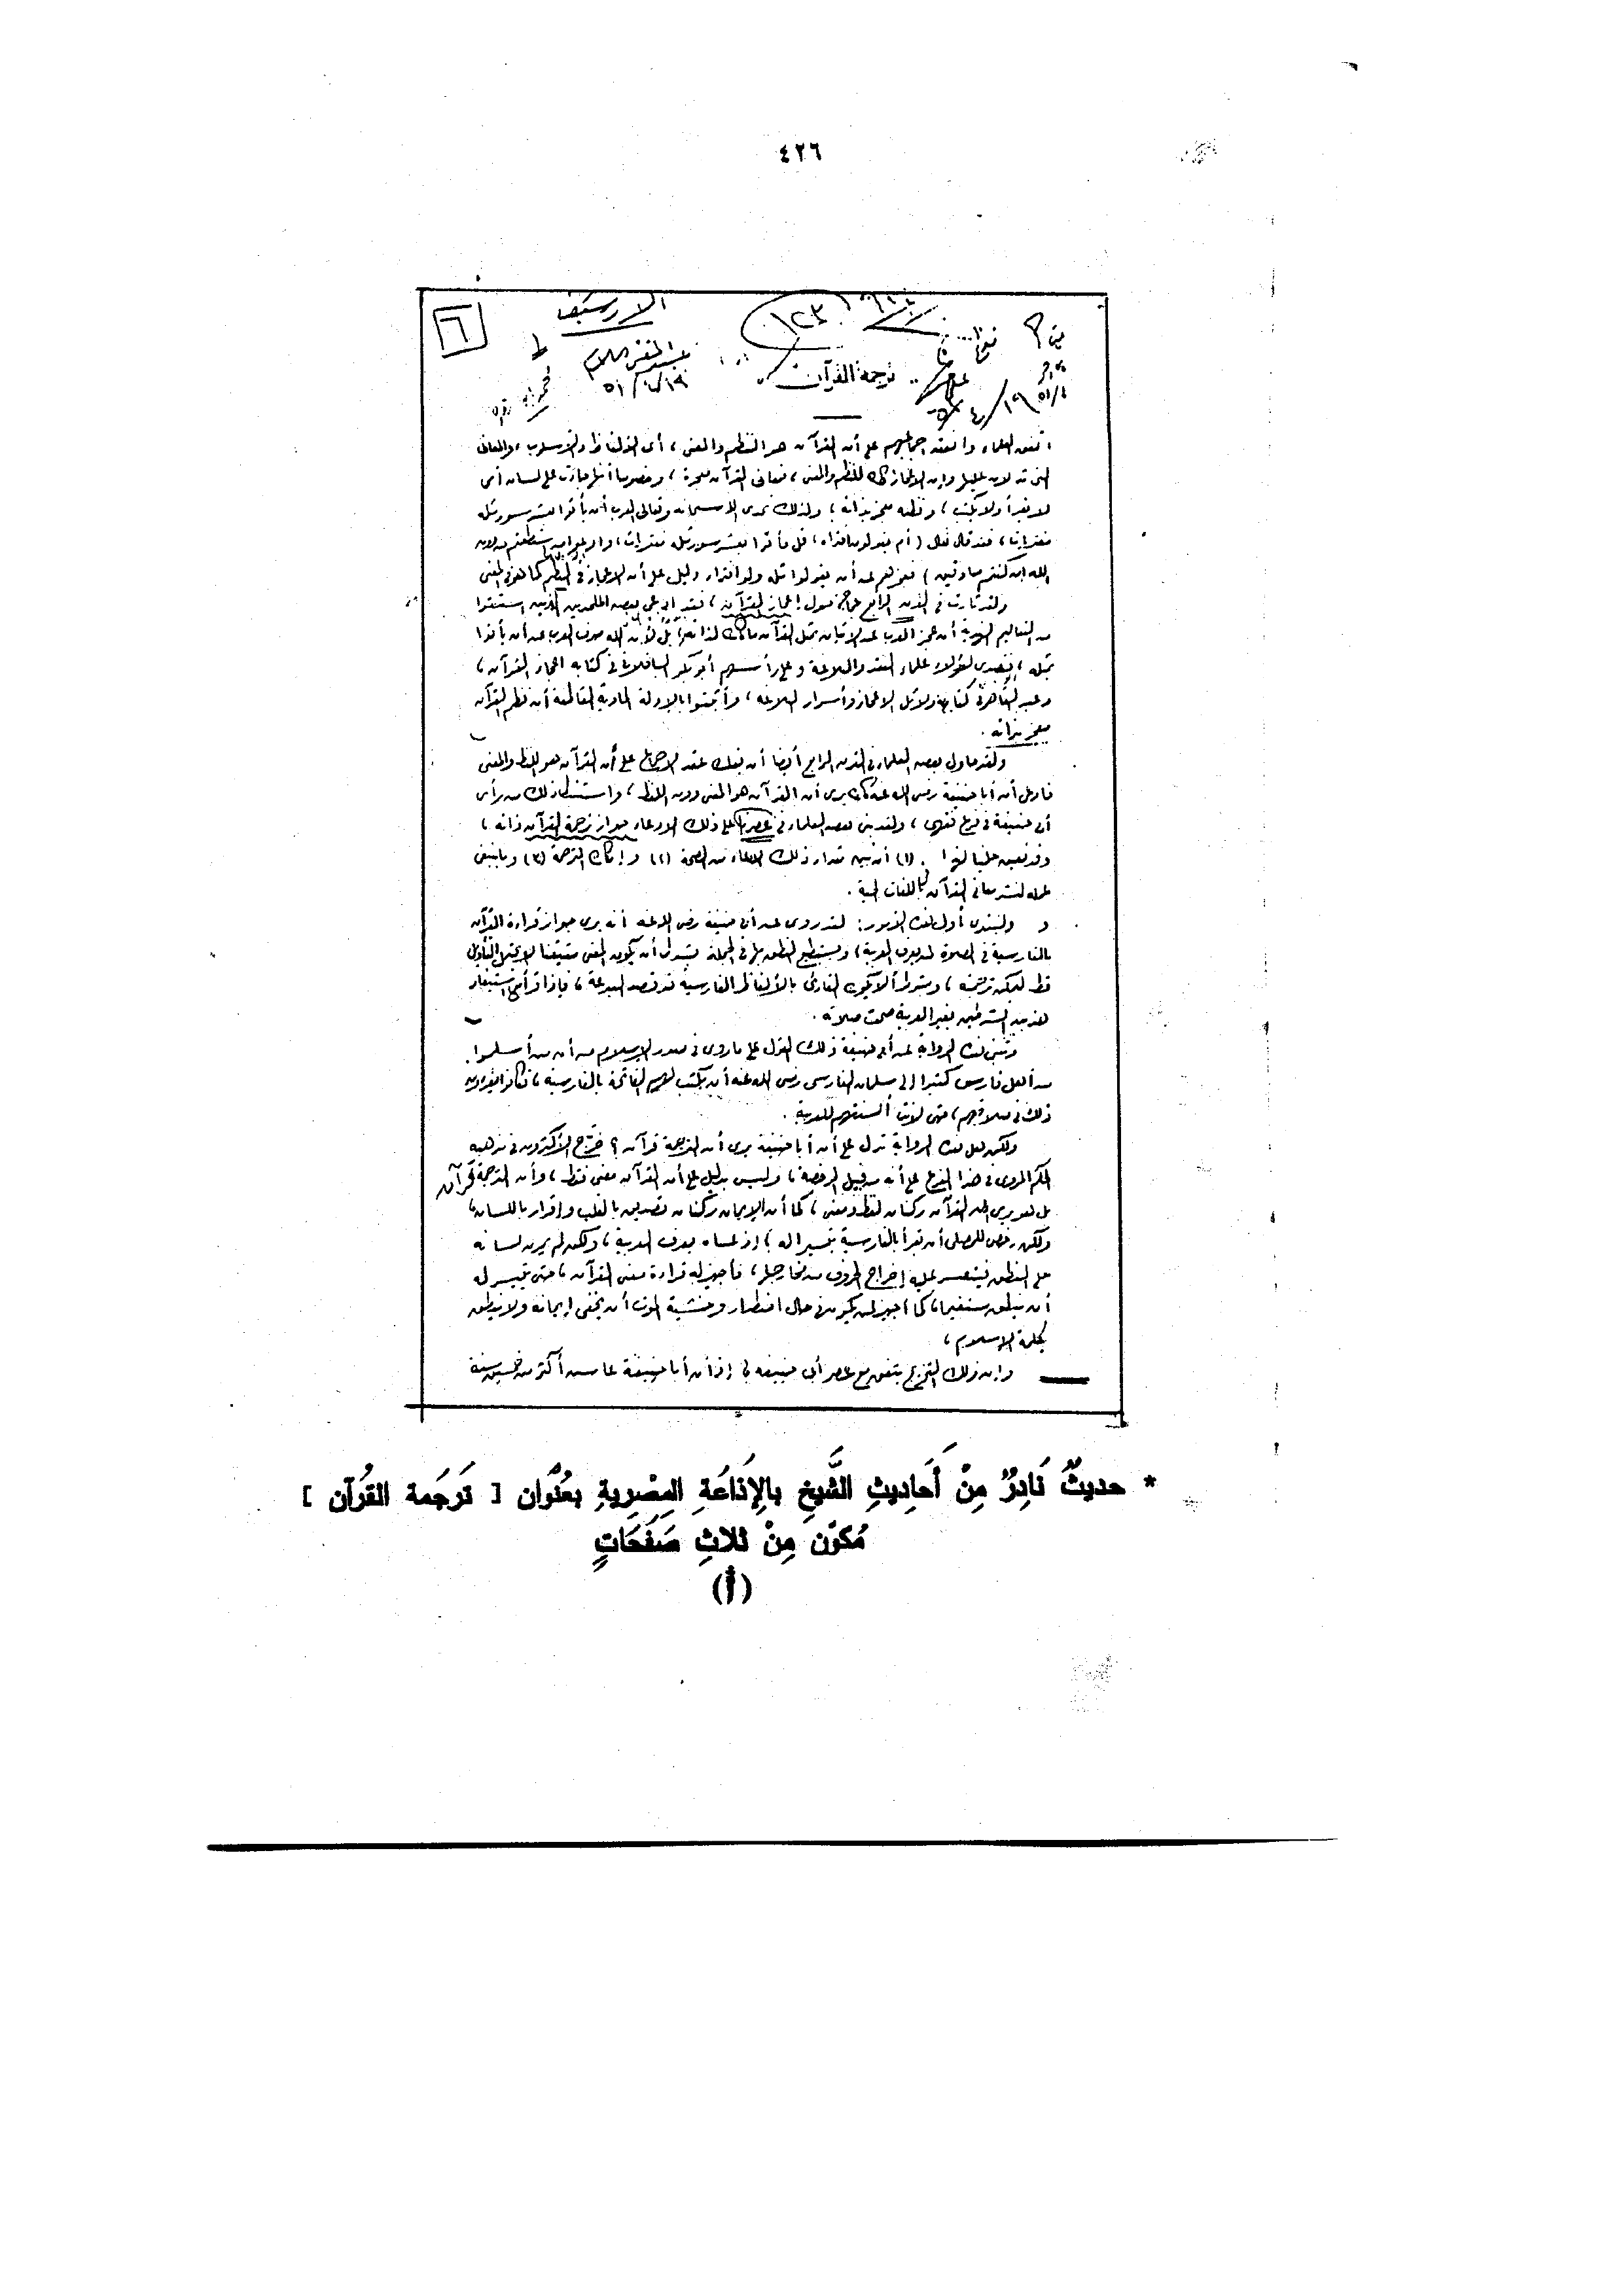 ٤٢٦
٦
الارشيف
١٢٣
ترجمة القرآن
اتفق العلماء وانعقد اجماعهم على أن القرآن هو النظم والمعنى، أى الألفاظ والأسلوب، والمعانى
التى تدل عليها وإن الاعجاز كان للنظم والمعنى، فمعانى القرآن معجزة، وخصوصا أنها جاءت على لسان أمى
لا يقرأ ولا يكتب، ونظمه معجز بذاته، ولذلك تحدى الله سبحانه وتعالى العرب أن يأتوا بعشر سور مثله
مفتريات، فقد قال تعالى (أم يقولون افتراه، قل فأتوا بعشر سور مثله مفتريات، وادعوا من استطعتم من دون
الله إن كنتم صادقين) فعجزهم عن أن يقولوا مثله ولو افتراء دليل على أن الاعجاز فى النظم كما هو فى المعنى
ولقد ثارت فى القرن الرابع عجاجة حول إعجاز القرآن، فقد ادعى بعض الملحدين الذين استقوا
من التعاليم الهندية أن عجز العرب عن الاتيان بمثل القرآن ما كان لذاته، بل لأن الله صرف العرب عن أن يأتوا
بمثله، فتصدى لهؤلاء علماء النقد والبلاغة وعلى رأسهم أبو بكر الباقلانى فى كتابه اعجاز القرآن،
وعبد القاهر فى كتابيه دلائل الاعجاز وأسرار البلاغة، وأثبتوا بالأدلة المادية القاطعة أن نظم القرآن
معجز بذاته.
ولقد حاول بعض العلماء فى القرن الرابع أيضا أن يفك عقد الاجماع على أن القرآن هو اللفظ والمعنى
فادعى أن أبا حنيفة رضى الله عنه كان يرى أن القرآن هو المعنى دون اللفظ، واستنبط ذلك من رأى
أبى حنيفة فى فرع فقهى، ولقد بنى بعض العلماء فى عصرنا على ذلك الادعاء جواز ترجمة القرآن ذاته،
وقد تعين علينا (١) أن نبين مقدار ذلك الادعاء من الصحة (٢) وإمكان الترجمة (٣) وما ينبغى
عمله لنشر معانى القرآن باللغات الحية.
ولنبتدئ أول هذه الأمور: لقد روى عن أبى حنيفة رضى الله عنه أنه يرى جواز قراءة القرآن
بالفارسية فى الصلاة لمن يعرف العربية، ويستطيع النطق بها فى الجملة بشرط أن يكون المعنى متيقنا لا يحتمل التأويل
قط ليمكن ترجمته، وبشرط ألا يكون القارئ بالألفاظ الفارسية قد قصد البدعة، فإذا قرأ
هذين الشرطين بغير العربية صحت صلاته.
وتبنى هذه الرواية عن أبى حنيفة ذلك القول على ما روى فى صدر الإسلام من أن من أسلموا
من أهل فارس كتبوا إلى سلمان الفارسى رضى الله عنه أن يكتب لهم الفاتحة بالفارسية، فكانوا يقرءون
ذلك فى صلاتهم، حتى لانت ألسنتهم للعربية.
ولكن هل هذه الرواية تدل على أن أبا حنيفة يرى أن الترجمة قرآن؟ خرّج الأكثرون فى مذهبه
الحكم المروى فى هذا الفرع على أنه من قبيل الرخصة، وليس بدليل على أن القرآن معنى فقط، وأن الترجمة قرآن
بل هو يرى أن القرآن ركنان لفظ ومعنى، كما أن الإيمان ركنان تصديق بالقلب وإقرار باللسان،
ولكن رخص للمصلى أن يقرأ بالفارسية تيسيرا له، إذ عساه يعرف العربية، ولكن لم يمرن لسانه
على النطق فيتعسر عليه إخراج الحروف من مخارجها، فأجيز له قراءة معنى القرآن، حتى تيسر له
أن ينطق مستقيما، كما أجيز لمن يكون فى حال اضطرار وخشية الموت أن يخفى إيمانه ولا ينطق
بكلمة الإسلام،
وإن ذلك التخريج يتفق مع عصر أبى حنيفة إذ أن أبا حنيفة عاش أكثر من خمسين سنة
* حديثٌ نَادِرٌ مِنْ أَحَادِيثِ الشَّيخِ بالإِذَاعَةِ المِصْرِيةِ بعُنْوان [ تَرجَمة القُرآن ]
مُكوَّن مِنْ ثلاثِ صَفَحَاتٍ
(أ)